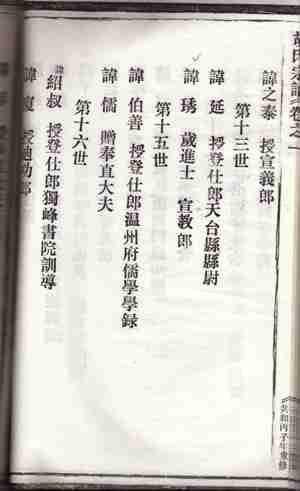 胡氏宗譜卷之一
諱之泰 授宣義郎
第十三世
諱延 授登仕郎天台縣縣尉
諱琇 歲進士 宣教郎
第十五世
諱伯善 授登仕郎温州府儒學學録
諱儒 贈奉直大夫
第十六世
諱紹叔 授登仕郎獨峰書院訓導
諱 授迪功郎
共和丙子年重修